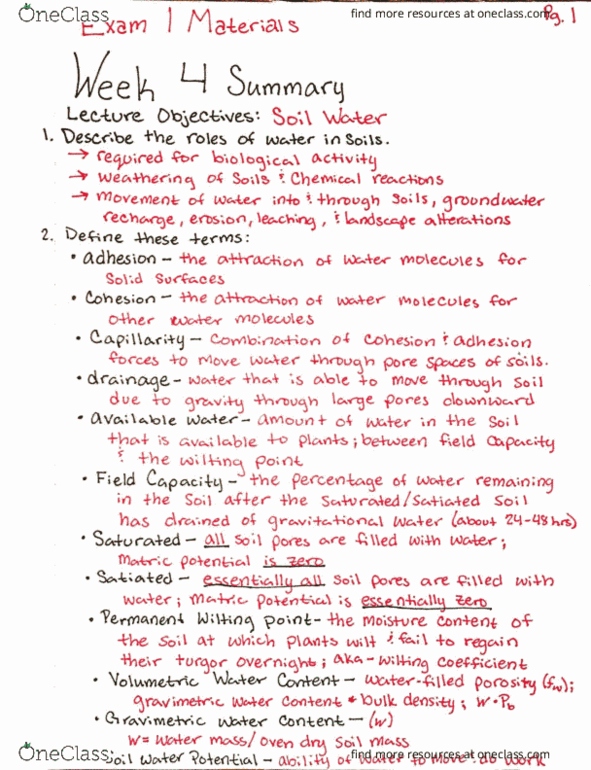 OneClass
find more resources at oneclass.com
Pg. 1
Exam 1 Materials
Week 4 Summary
Lecture Objectives: Soil Water
1. Describe the roles of water in soils.
→ required for biological activity
→ weathering of soils & chemical reactions
→ movement of water into & through soils, groundwater
recharge, erosion, leaching, & landscape alterations
2. Define these terms:
• adhesion – the attraction of water molecules for
solid surfaces
• Cohesion – the attraction of water molecules for
other water molecules
• Capillarity – combination of cohesion & adhesion
forces to move water through pore spaces of soils.
• drainage – water that is able to move through soil
due to gravity through large pores downward
• available water – amount of water in the soil
that is available to plants; between field capacity
& the wilting point
• Field Capacity – the percentage of water remaining
in the soil after the saturated/satiated soil
has drained of gravitational water (about 24-48 hrs)
• Saturated – all soil pores are filled with water;
matric potential is zero
• Satiated – essentially all soil pores are filled with
water; matric potential is essentially zero
• Permanent Wilting point – the moisture content of
the soil at which plants wilt & fail to regain
their turgor overnight; aka – wilting coefficient
• Volumetric Water Content – water-filled porosity (fw);
gravimetric water content * bulk density; w·Pb
• Gravimetric Water Content – (w)
w = water mass/oven dry soil mass
Soil Water Potential – ability of water to move: do work
OneClass
find more resources at oneclass.com